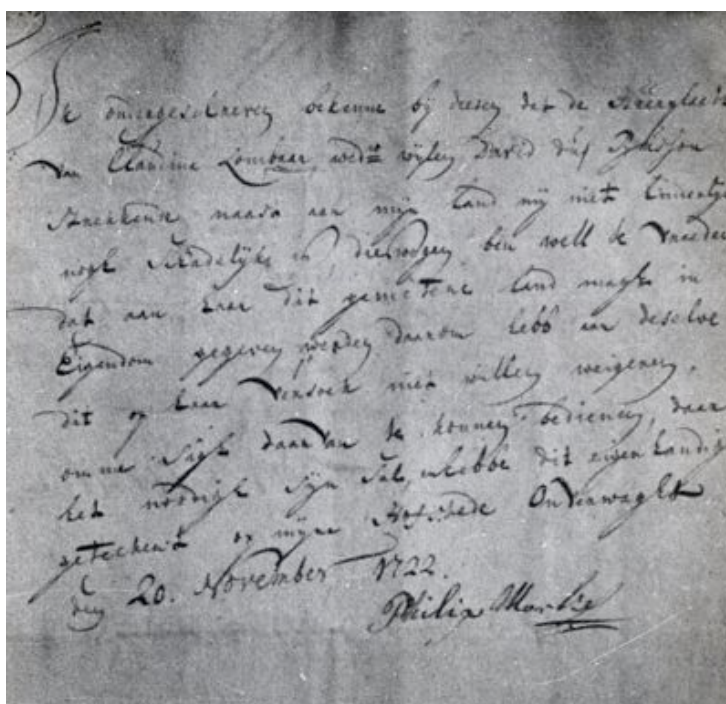 Ik ondergeschrevey bekenne bij desey dat de
van Claudina Lombaar wed:e wijley David du
naast aan mijn land mij niet
nogh Schadelijk is, diesweegey ben well te vreedey
dat aan haar dit gemetene land magh in
Eigendom gegevey werdey daarom hebb aan deselve
dit op haar versoek niet willey weigerey,
omme sigh daar van te konney bedieney, daar
het noodigh sijn sal, hebbe dit eigenhandig
getekent op mijne Hofstede Onverwaght
dey 20. November 1722.
Philip Morkel